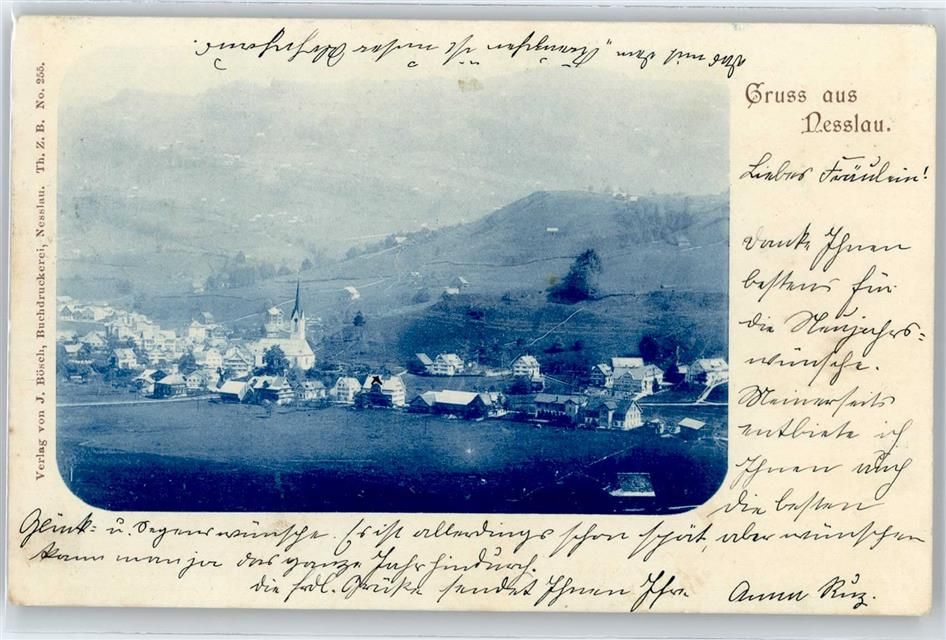 Gruss aus
Nesslau.
Liebes Fräulein!
Danke Ihnen
bestens für
die Neujahrs=
wünsche.
Meinerseits
entbiete ich
Ihnen auch
die besten
Glück= u. Segenswünsche. Es ist allerdings schon spät, aber wünschen
kann man ja das ganze Jahr hindurch.
die frdl. Grüße sendet Ihnen Ihre Anna Ruz.
Verlag von J. Bösch, Buchdruckerei, Nesslau. Th. Z. B. No. 255.
Das mit dem "ist unser